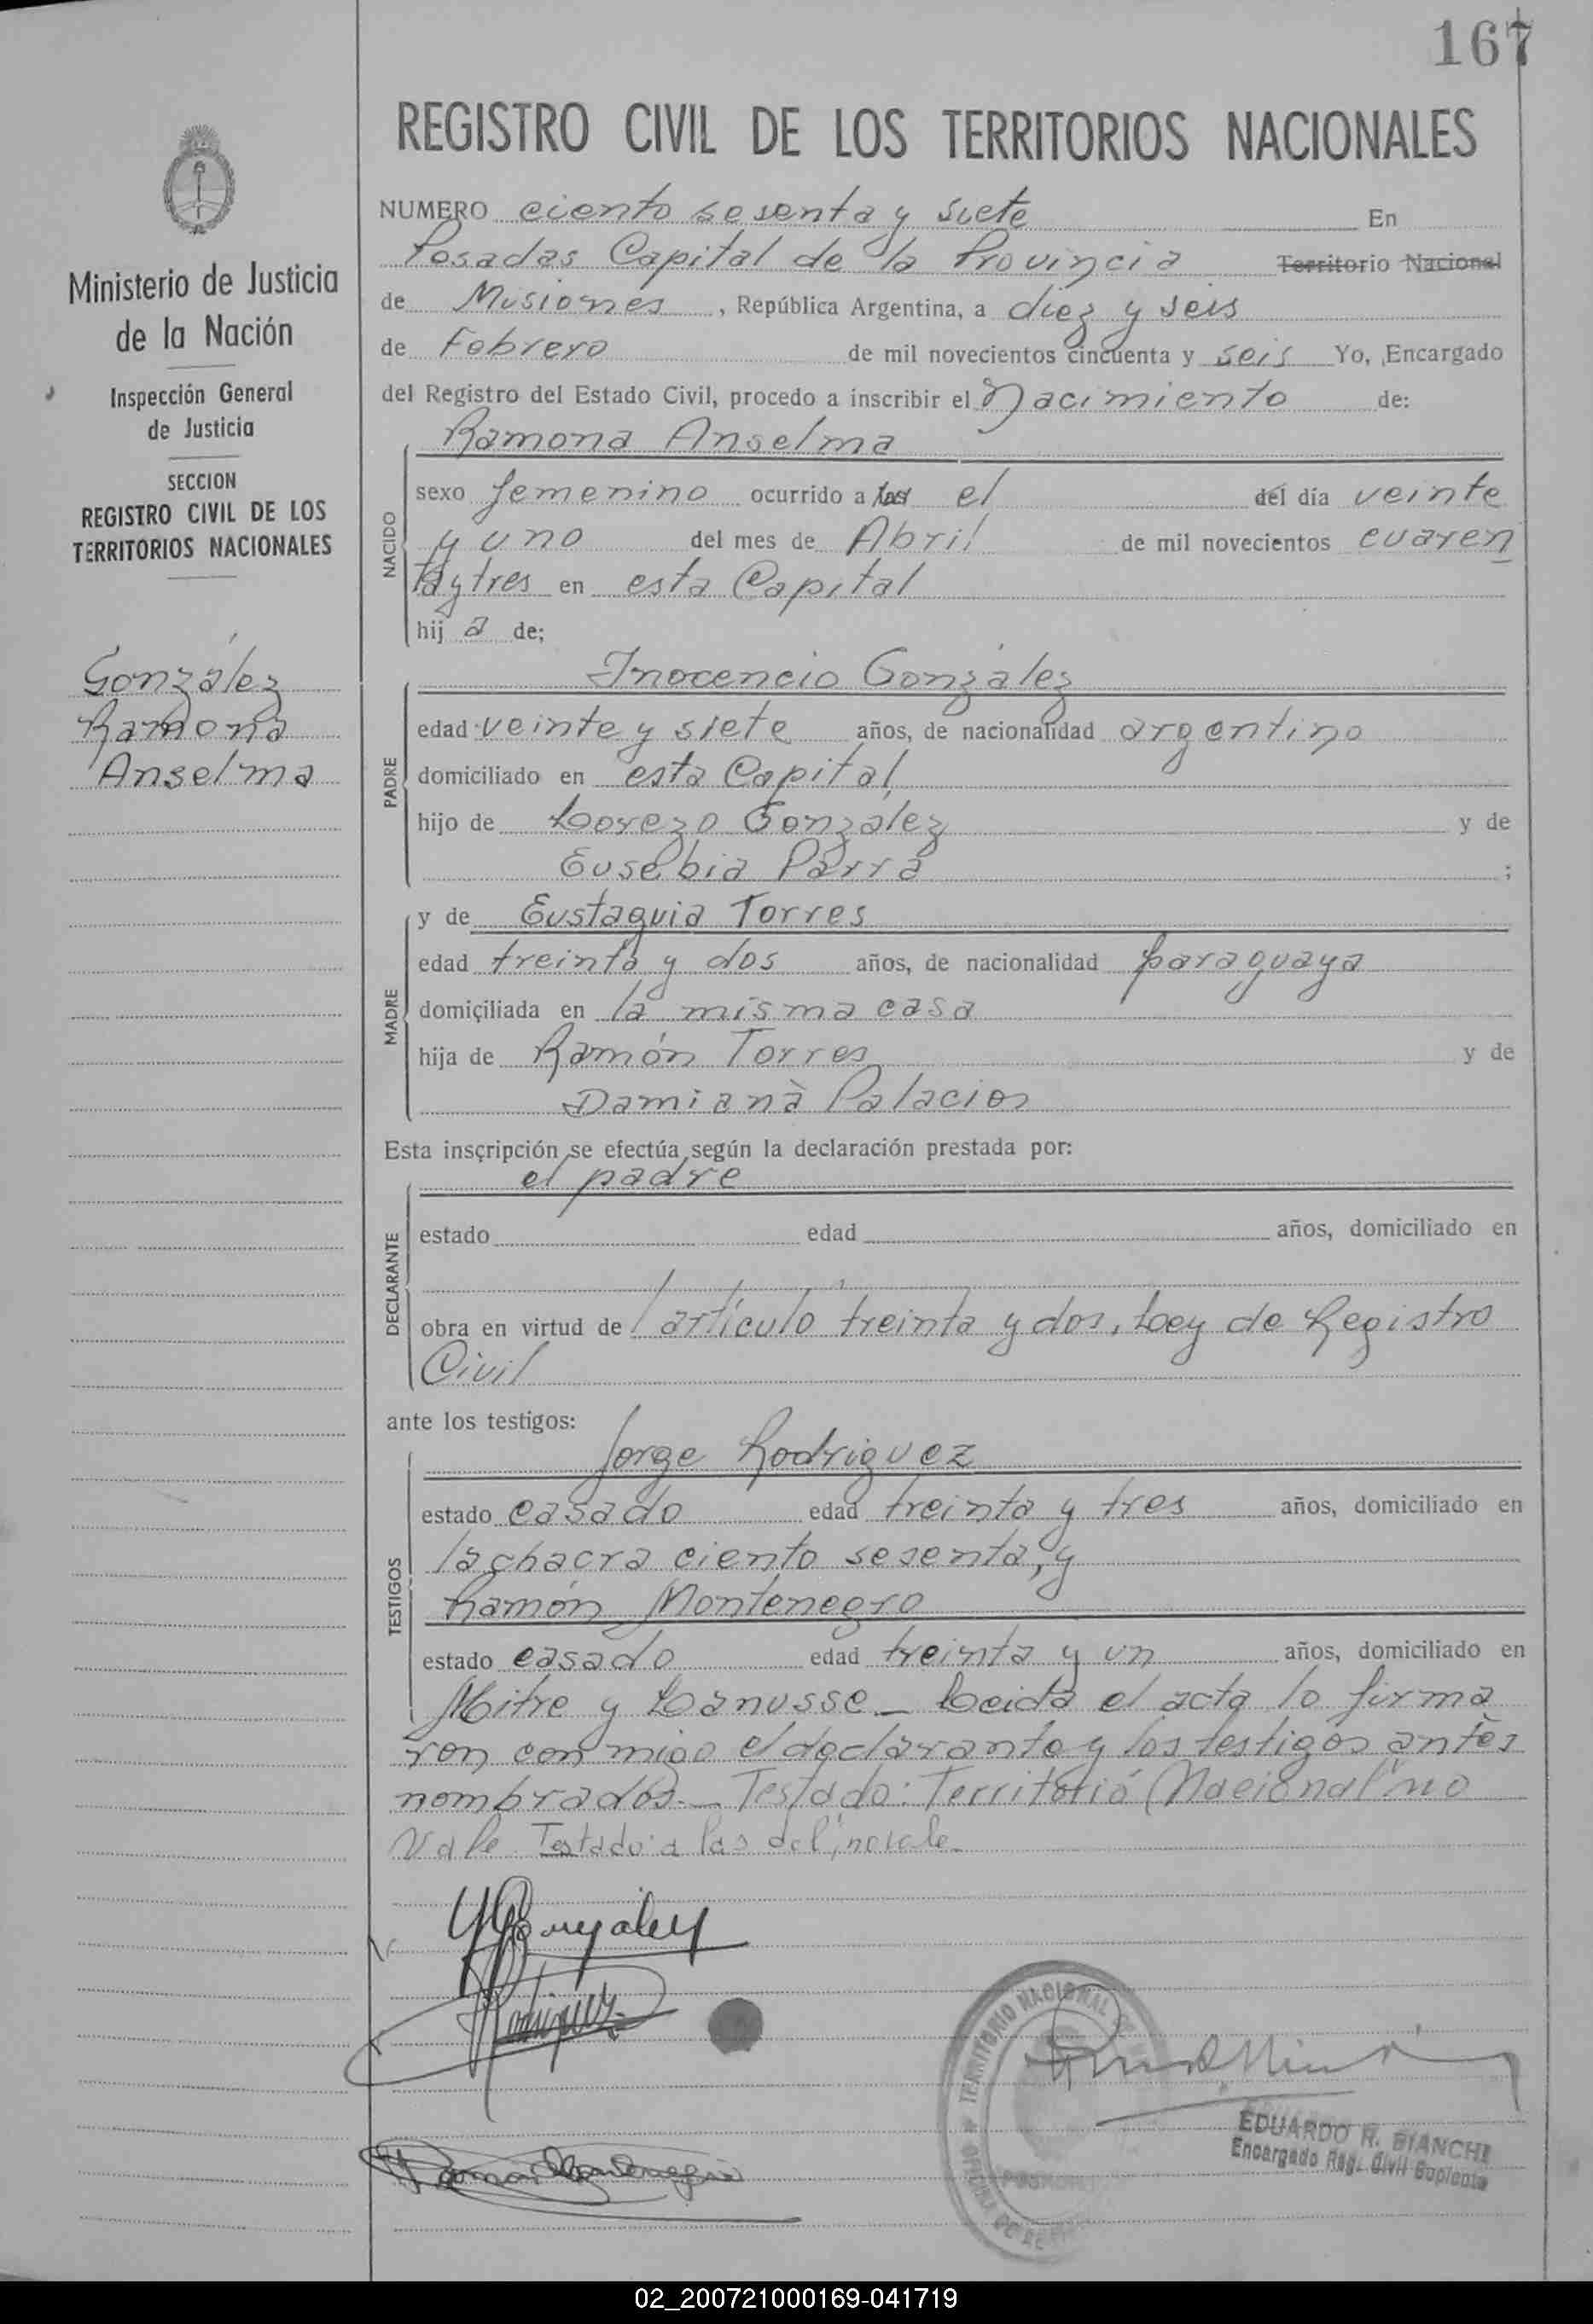 167
REGISTRO CIVIL DE LOS TERRITORIOS NACIONALES
Ministerio de Justicia
de la Nación
Inspección General
de Justicia
SECCION
REGISTRO CIVIL DE LOS
TERRITORIOS NACIONALES
González
Ramona
Anselma
NUMERO ciento sesenta y siete En
Posadas Capital de la Provincia Territorio Nacional
de Misiones, República Argentina, a diez y seis
de Febrero de mil novecientos cincuenta y seis Yo, Encargado
del Registro del Estado Civil, procedo a inscribir el Nacimiento de:
Ramona Anselma
NACIDO
sexo femenino ocurrido a las el del día veinte
y uno del mes de Abril de mil novecientos cuaren
ta y tres en esta Capital
hij a de;
PADRE
Inocencio González
edad veinte y siete años, de nacionalidad argentino
domiciliado en esta Capital
hijo de Lorezo González y de
Eusebia Parra ;
MADRE
y de Eustaquia Torres
edad treinta y dos años, de nacionalidad paraguaya
domiciliada en la misma casa
hija de Ramón Torres y de
Damiana Palacios
Esta inscripción se efectúa según la declaración prestada por:
el padre
DECLARANTE
estado edad años, domiciliado en
obra en virtud del artículo treinta y dos, Ley de Registro
Civil
ante los testigos:
TESTIGOS
Jorge Rodriguez
estado casado edad treinta y tres años, domiciliado en
la chacra ciento sesenta, y
Ramón Montenegro
estado casado edad treinta y un años, domiciliado en
Mitre y Lanusse_ Leida el acta lo firma
ron con migo el declarante y los testigos antes
nombrados._ Testado: Territorio Nacional "no
Vale Testado: a las del; no vale_
González
Rodriguez
Ramon Montenegro
TERRITORIO NACIONAL DE
POSADAS
EDUARDO R. BIANCHI
Encargado Reg. Civil Suplente
02_200721000169-041719